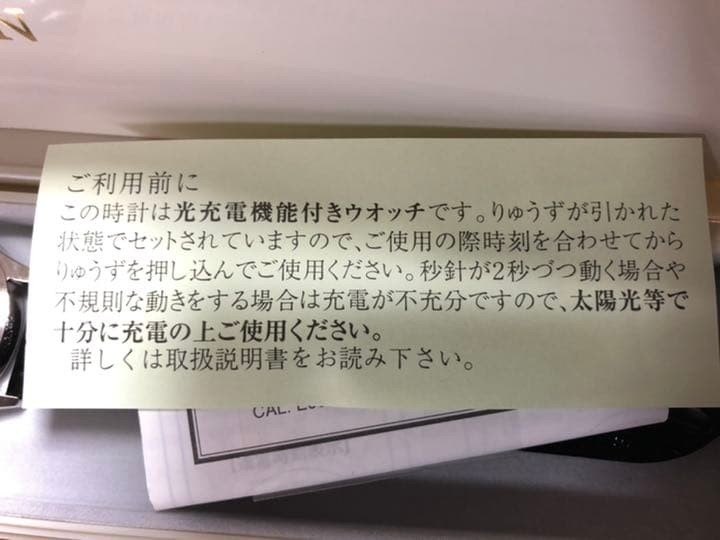 ご利用前に
この時計は光充電機能付きウオッチです。りゅうずが引かれた
状態でセットされていますので、ご使用の際時刻を合わせてから
りゅうずを押し込んでご使用ください。秒針が2秒づつ動く場合や
不規則な動きをする場合は充電が不充分ですので、太陽光等で
十分に充電の上ご使用ください。
詳しくは取扱説明書をお読み下さい。
CAL.